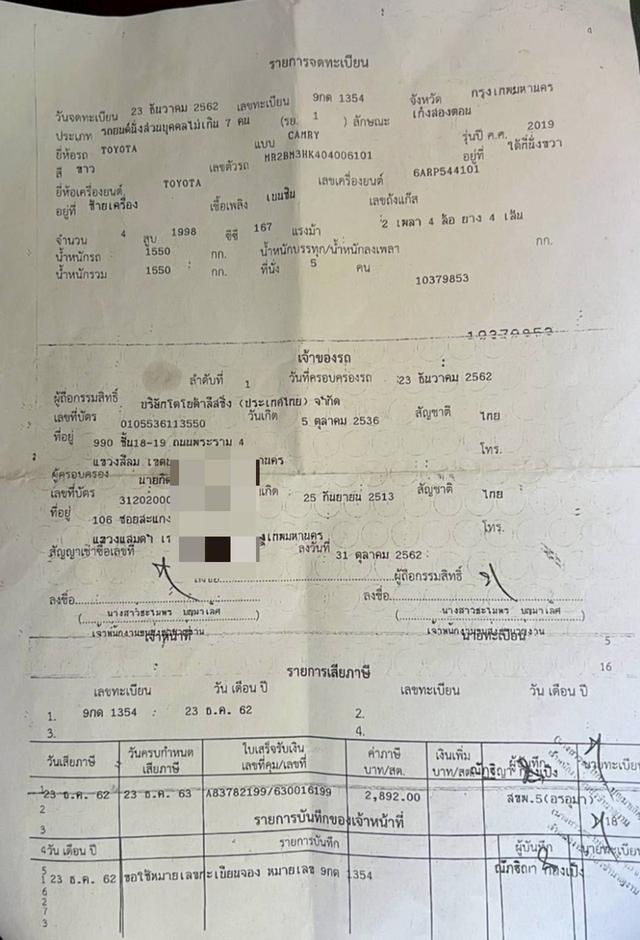 รายการจดทะเบียน
วันจดทะเบียน 23 ธันวาคม 2562 เลขทะเบียน 9กด 1354 จังหวัด กรุงเทพมหานคร
ประเภท รถยนต์นั่งส่วนบุคคลไม่เกิน 7 คน (รย. 1 ) ลักษณะ เก๋งสองตอน
ยี่ห้อรถ TOYOTA แบบ CAMRY รุ่นปี ค.ศ. 2019
สี ขาว เลขตัวรถ MR2BM3HK404006101 อยู่ที่ ใต้ที่นั่งขวา
ยี่ห้อเครื่องยนต์ TOYOTA เลขเครื่องยนต์ 6ARP544101
อยู่ที่ ซ้ายเครื่อง เชื้อเพลิง เบนซิน เลขถังแก๊ส
จำนวน 4 สูบ 1998 ซีซี 167 แรงม้า 2 เพลา 4 ล้อ ยาง 4 เส้น
น้ำหนักรถ 1550 กก. น้ำหนักบรรทุก/น้ำหนักลงเพลา กก.
น้ำหนักรวม 1550 กก. ที่นั่ง 5 คน
10379853
10379853
เจ้าของรถ
ลำดับที่ 1 วันที่ครอบครองรถ 23 ธันวาคม 2562
ผู้ถือกรรมสิทธิ์ บริษัทโตโยต้าลีสซิ่ง (ประเทศไทย) จำกัด
เลขที่บัตร 0105536113550 วันเกิด 5 ตุลาคม 2536 สัญชาติ ไทย
ที่อยู่ 990 ชั้น18-19 ถนนพระราม 4 โทร.
แขวงสีลม
ผู้ครอบครอง
เลขที่บัตร 31202000 25 กันยายน 2513 สัญชาติ ไทย
ที่อยู่ 106 ซอยสะแกง โทร.
สัญญาเช่าซื้อเลขที่ ลงวันที่ 31 ตุลาคม 2562
ผู้ถือกรรมสิทธิ์
ลงชื่อ ลงชื่อ
เจ้าหน้าที่ นายทะเบียน
5
16
รายการเสียภาษี
เลขทะเบียน วัน เดือน ปี เลขทะเบียน วัน เดือน ปี
1. 9กด 1354 23 ธ.ค. 62 2.
3. 4.
วันเสียภาษี วันครบกำหนดเสียภาษี ใบเสร็จรับเงิน เลขที่คุม/เลขที่ ค่าภาษี บาท/สต. เงินเพิ่ม บาท/สต. ผู้บันทึก นายทะเบียน
23 ธ.ค. 62 23 ธ.ค. 63 A83782199/630016199 2,892.00 สขพ.5(อรอุมา)
2
3 รายการบันทึกของเจ้าหน้าที่ 18
4 วัน เดือน ปี รายการบันทึก ผู้บันทึก นายทะเบียน
5
1 23 ธ.ค. 62 ขอใช้หมายเลขทะเบียนจอง หมายเลข 9กด 1354
6
2
7
3